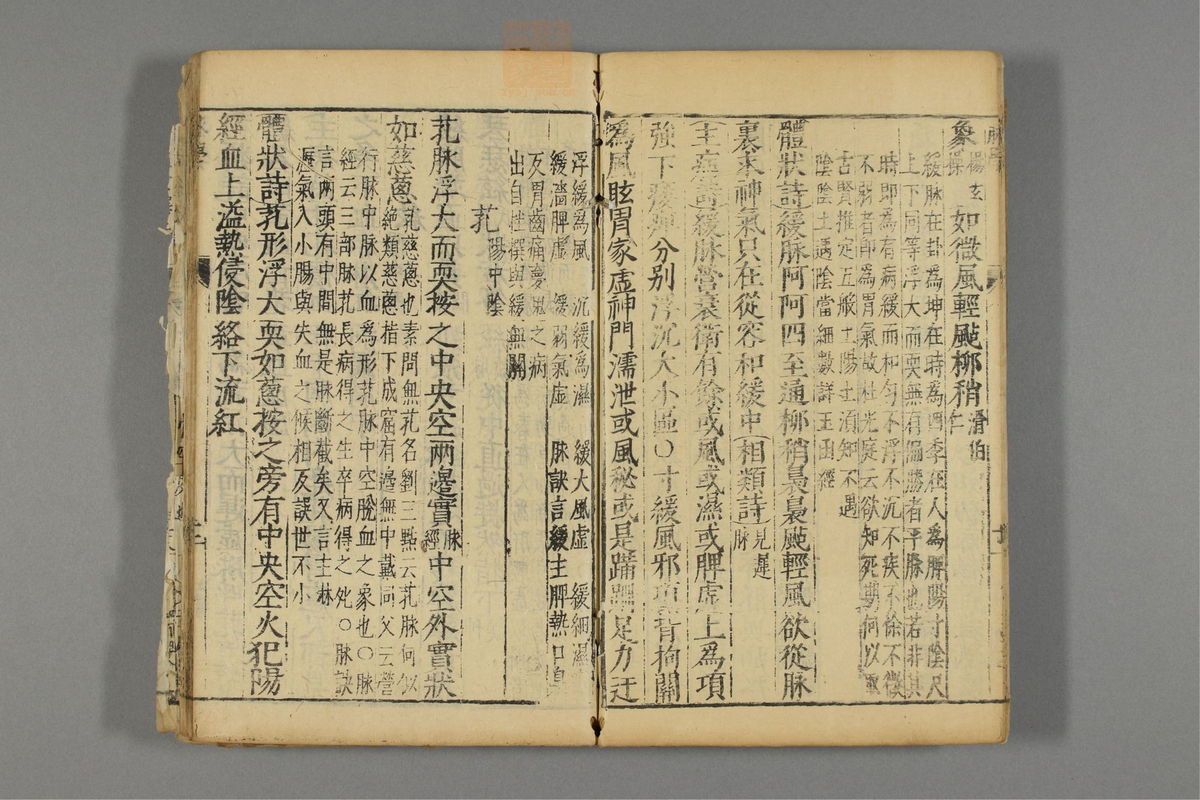 象 楊玄操 如微風輕颭柳稍 滑伯仁
緩脉在卦為坤在時為四季在人為脾陽寸陰尺
上下同等浮大而耎無有偏勝者平脉也若非其
時即為有病緩而和勻不浮不沉不疾不徐不微
不弱者即為胃氣故杜光庭云欲知死期何以取
古賢推定五般土陽土須知不遇
陰陰土遇陰當細數詳玉函經
體狀詩緩脉阿阿四至通柳稍裊裊颭輕風欲從脉
裏求神氣只在從容和緩中相類詩見遲脉
主病詩緩脉營衰衛有餘或風或濕或脾虛上為項
強下痿痺分別浮沉大小區○寸緩風邪項背拘關
為風眩胃家虛神門濡泄或風秘或是蹣跚足力迂
浮緩為風 沉緩為濕 緩大風虛 緩細濕
緩濇脾虛 緩弱氣虛 脉訣言緩主脾熱口臭
反胃齒痛夢鬼之病
出自杜撰與緩無關
芤 陽中陰
芤脉浮大而耎按之中央空兩邊實脉經中空外實狀
如慈蔥芤慈蔥也素問無芤名劉三點云芤脉何似
絶類慈蔥指下成窟有邊無中戴同父云營
行脉中脉以血為形芤脉中空脫血之象也○脉
經云三部脉芤長病得之生卒病得之死○脉訣
言兩頭有中間無是脉斷截矣又言主淋
瀝氣入小腸與失血之候相反誤世不小
體狀詩芤形浮大耎如蔥按之旁有中央空火犯陽
經血上溢熱侵陰絡下流紅